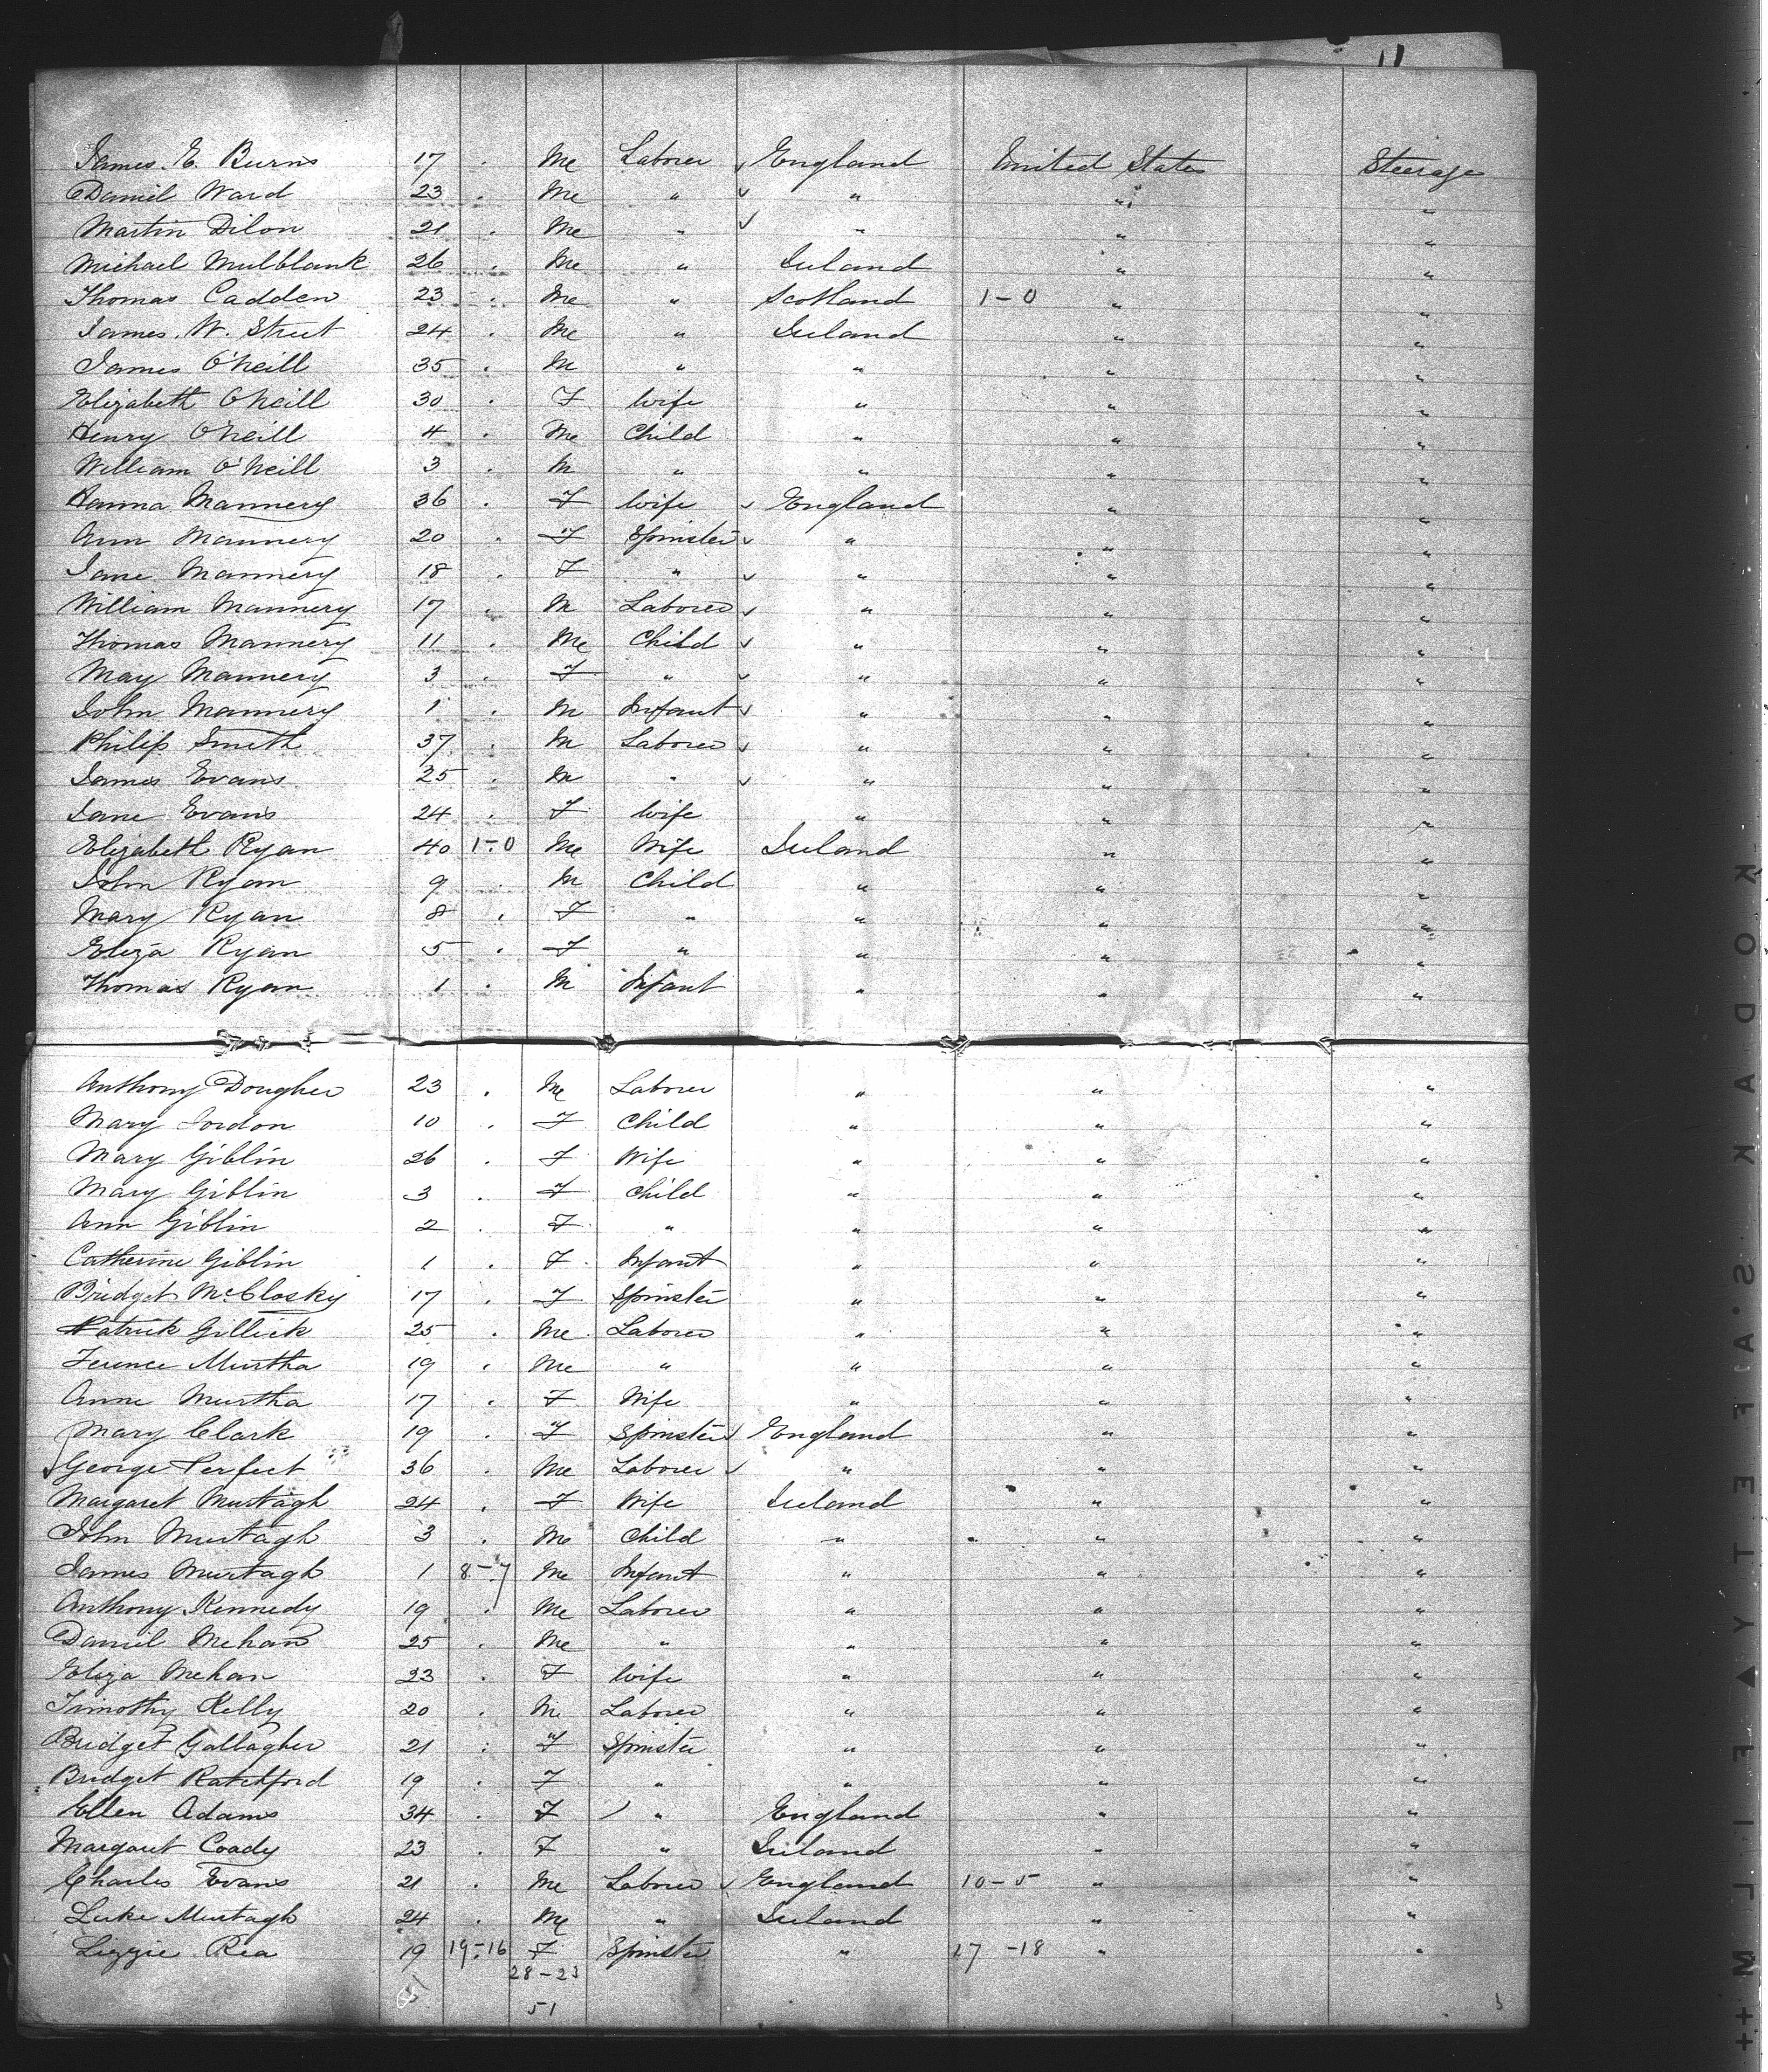 11
James. E. Burns 17 . Me Laborer ✓ England United States Steerage
Daniel Ward 23 . Me " ✓ " " "
Martin Dilon 21 . Me " ✓ " " "
Michael Mulblank 26 . Me " Ireland " "
Thomas Cadden 23 . Me " Scotland 1-0 " "
James. W. Street 24 . Me " Ireland " "
James O'Neill 35 . M " " " "
Elizabeth O'Neill 30 . F Wife " " "
Henry O'Neill 4 . Me Child " " "
William O'Neill 3 . M " " " "
Hanna Mannery 36 . F Wife ✓ England " "
Ann Mannery 20 . F Spinster ✓ " " "
Jane Mannery 18 . F " ✓ " " "
William Mannery 17 . M Laborer ✓ " " "
Thomas Mannery 11 . Me Child ✓ " " "
May Mannery 3 . F " ✓ " " "
John Mannery 1 . M Infant ✓ " " "
Philip Smith 37 . M Laborer ✓ " " "
James Evans 25 . M " ✓ " " "
Jane Evans 24 . F Wife " " "
Elizabeth Ryan 40 1-0 Me Wife Ireland " "
John Ryan 9 . M Child " " "
Mary Ryan 8 . F " " " "
Eliza Ryan 5 . F " " " "
Thomas Ryan 1 . M Infant " " "
Anthony Dougher 23 . Me Laborer " " "
Mary Jordon 10 . F Child " " "
Mary Giblin 26 . F Wife " " "
Mary Giblin 3 . F Child " " "
Ann Giblin 2 . F " " " "
Catherine Giblin 1 . F Infant " " "
Bridget McClosky 17 . F Spinster " " "
Patrick Gillick 25 . Me Laborer " " "
Terence Murtha 19 . Me " " " "
Anne Murtha 17 . F Wife " " "
Mary Clark 19 . F Spinster ✓ England " "
✓ George Perfect 36 . Me Laborer ✓ " " "
Margaret Murtagh 24 . F Wife Ireland " "
John Murtagh 3 . Me Child " " "
James Murtagh 1 8-7 Me Infant " " "
Anthony Kennedy 19 . Me Laborer " " "
Daniel Mehan 25 . Me " " " "
Eliza Mehan 23 . F Wife " " "
Timothy Kelly 20 . M Laborer " " "
Bridget Gallagher 21 . F Spinster " " "
Bridget Ratchford 19 . F " " " "
Ellen Adams 34 . F " England " "
Margaret Coady 23 . F " Ireland " "
Charles Evans 21 . Me Laborer ✓ England 10-5 " "
Luke Murtagh 24 . Me " Ireland " "
Lizzie Rea 19 19-16 F Spinster " 17-18 " "
28-23
51
KODAK S'AFETY ▲ FILM ++